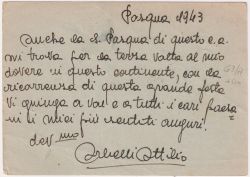 Pasqua 1943
Anche la S. Pasqua di questo c. a.
mi trova per la terza volta al mio
dovere in questo continente, con la
ricorrenza di questa grande festa
vi giunga a voi e a tutti i cari
ni i miei più sentiti auguri!
dev mo
Attilio